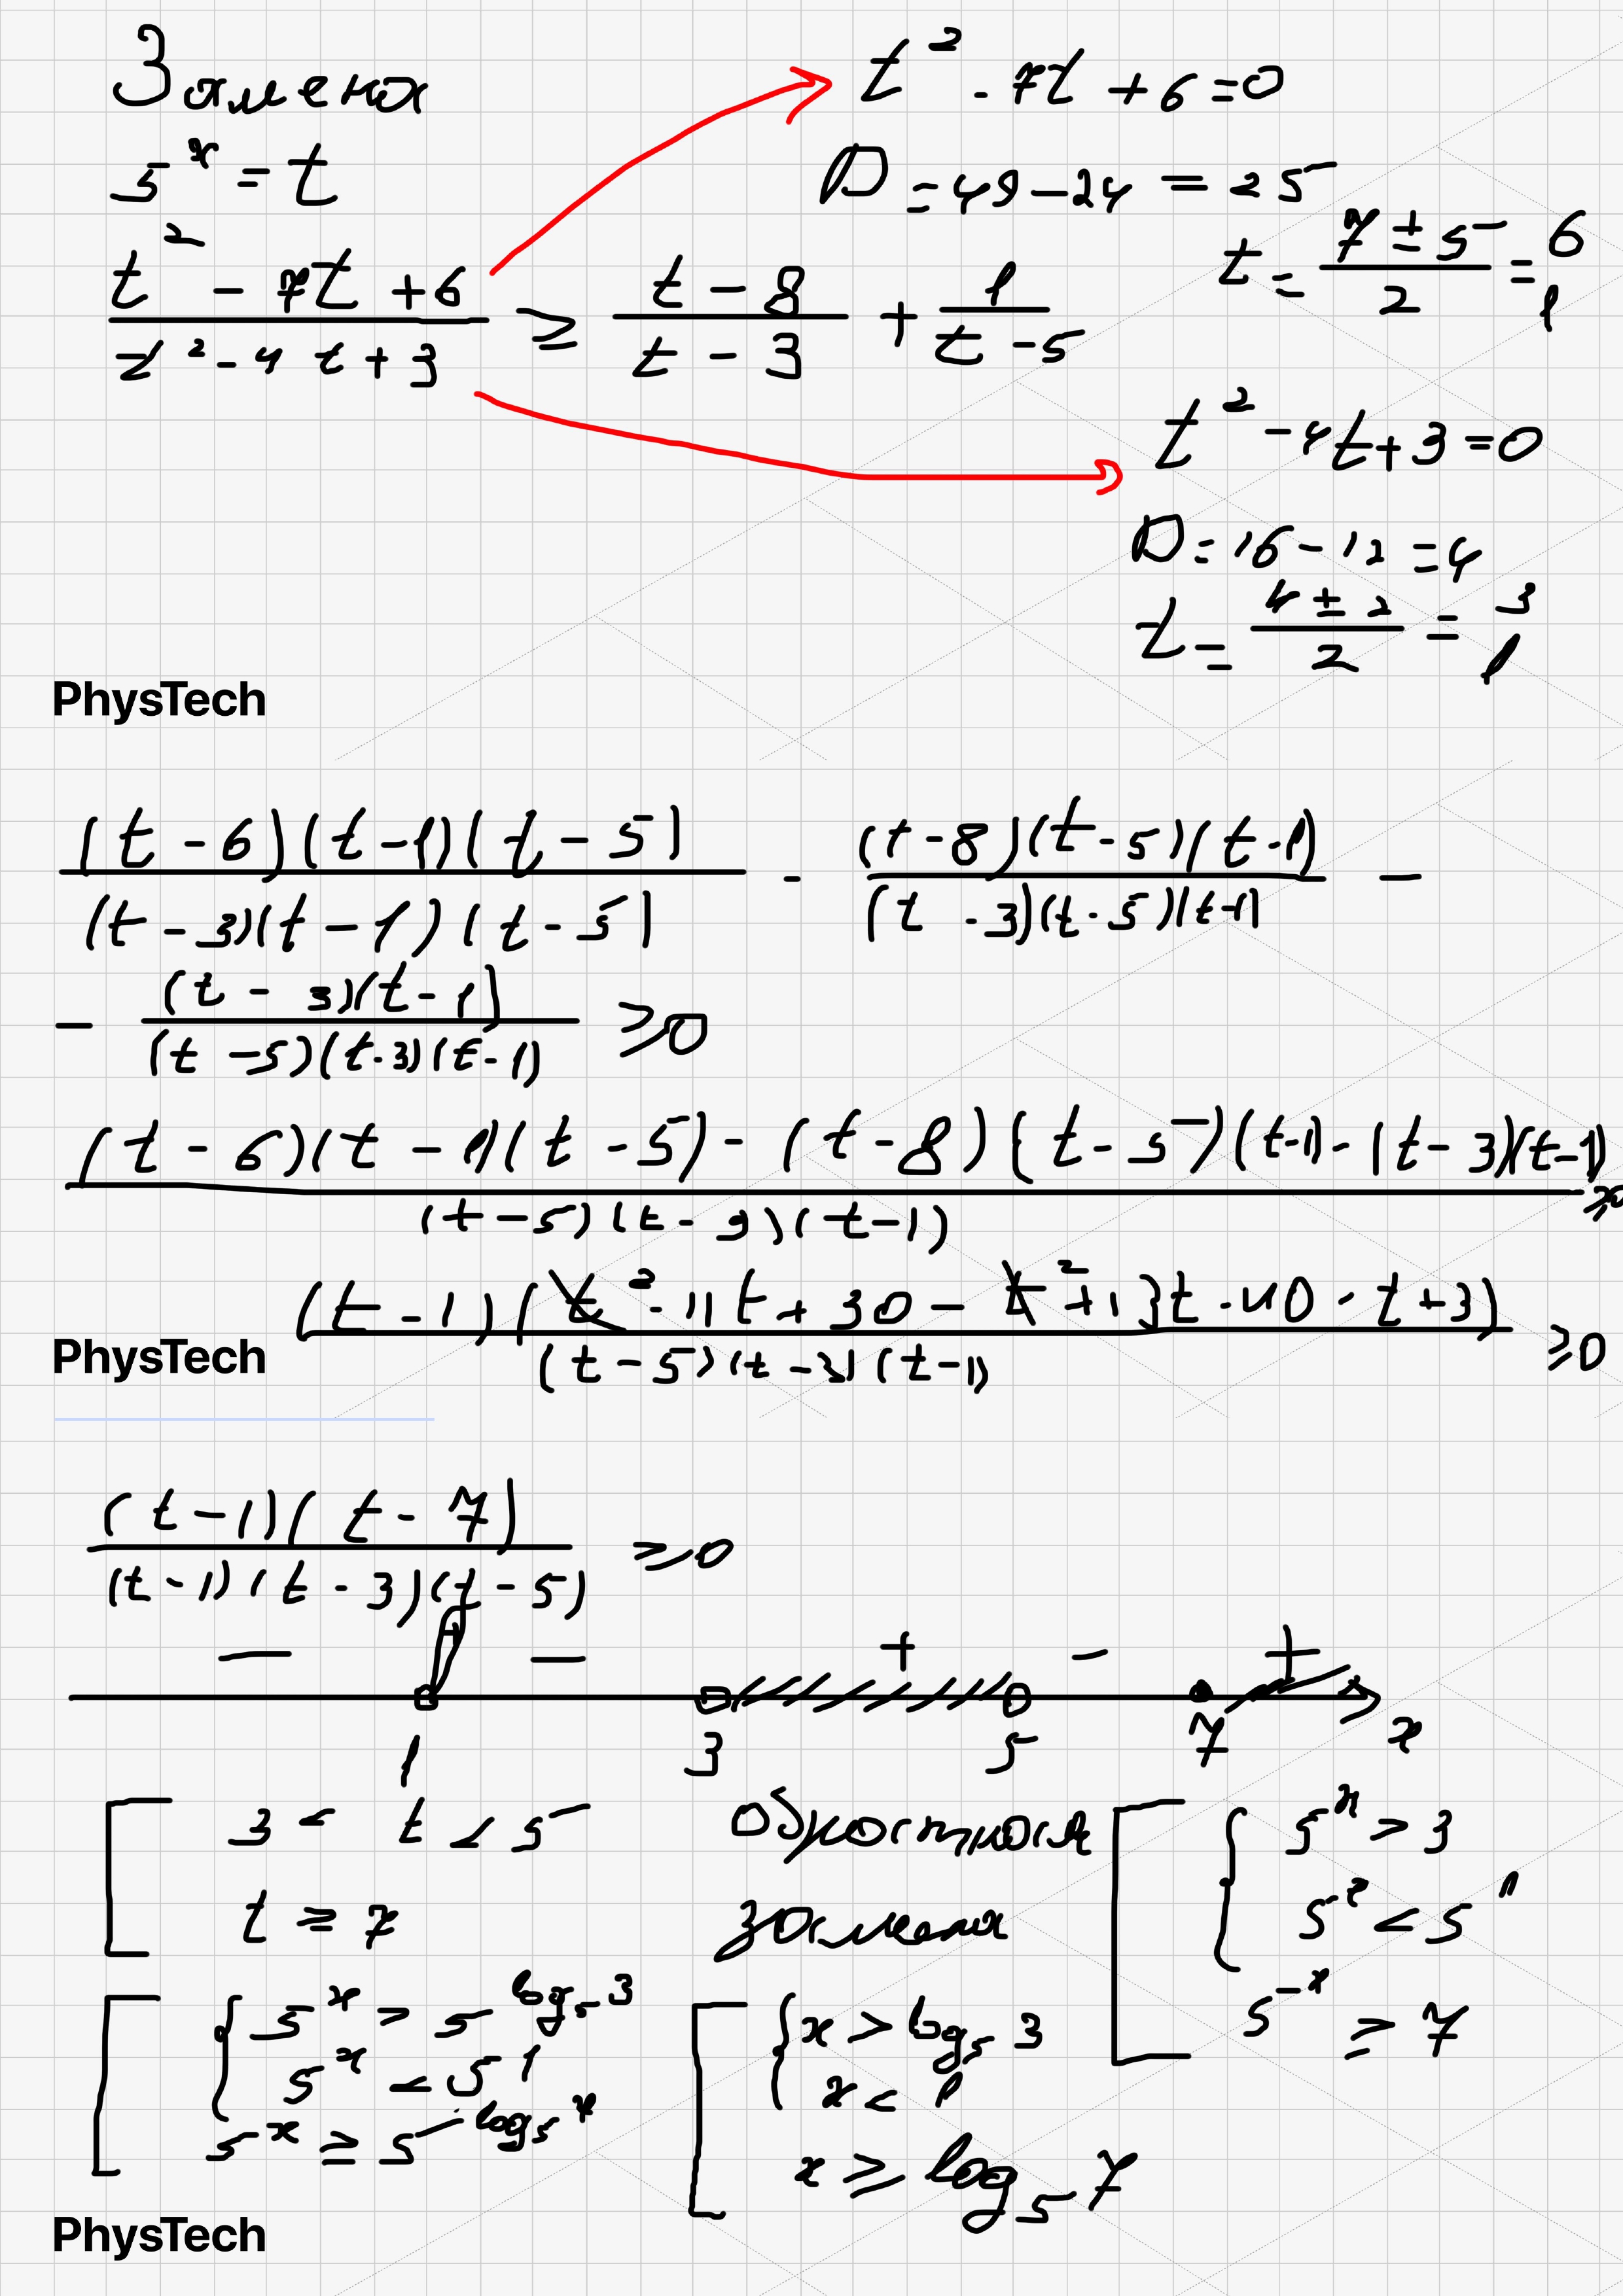 Замена
5^x = t
(t² - 7t + 6)/(t² - 4t + 3) ≥ (t - 8)/(t - 3) + 1/(t - 5)
t² - 7t + 6 = 0
D = 49 - 24 = 25
t = (7 ± 5)/2 = 6
1
t² - 4t + 3 = 0
D = 16 - 12 = 4
t = (4 ± 2)/2 = 3
1
PhysTech
((t - 6)(t - 1)(t - 5))/((t - 3)(t - 1)(t - 5)) - ((t - 8)(t - 5)(t - 1))/((t - 3)(t - 5)(t - 1)) -
- ((t - 3)(t - 1))/((t - 5)(t - 3)(t - 1)) ≥ 0
((t - 6)(t - 1)(t - 5) - (t - 8)(t - 5)(t - 1) - (t - 3)(t - 1))/((t - 5)(t - 3)(t - 1)) ≥ 0
((t - 1)(t² - 11t + 30 - t² + 13t - 40 - t + 3))/((t - 5)(t - 3)(t - 1)) ≥ 0
PhysTech
((t - 1)(t - 7))/((t - 1)(t - 3)(t - 5)) ≥ 0
- - + - +
1 3 5 7 x
3 < t < 5
t ≥ 7
Обратная
замена
5^x > 3
5^x < 5^1
5^x ≥ 7
5^x > 5^log_5 3
5^x < 5^1
5^x ≥ 5^log_5 7
x > log_5 3
x < 1
x ≥ log_5 7
PhysTech